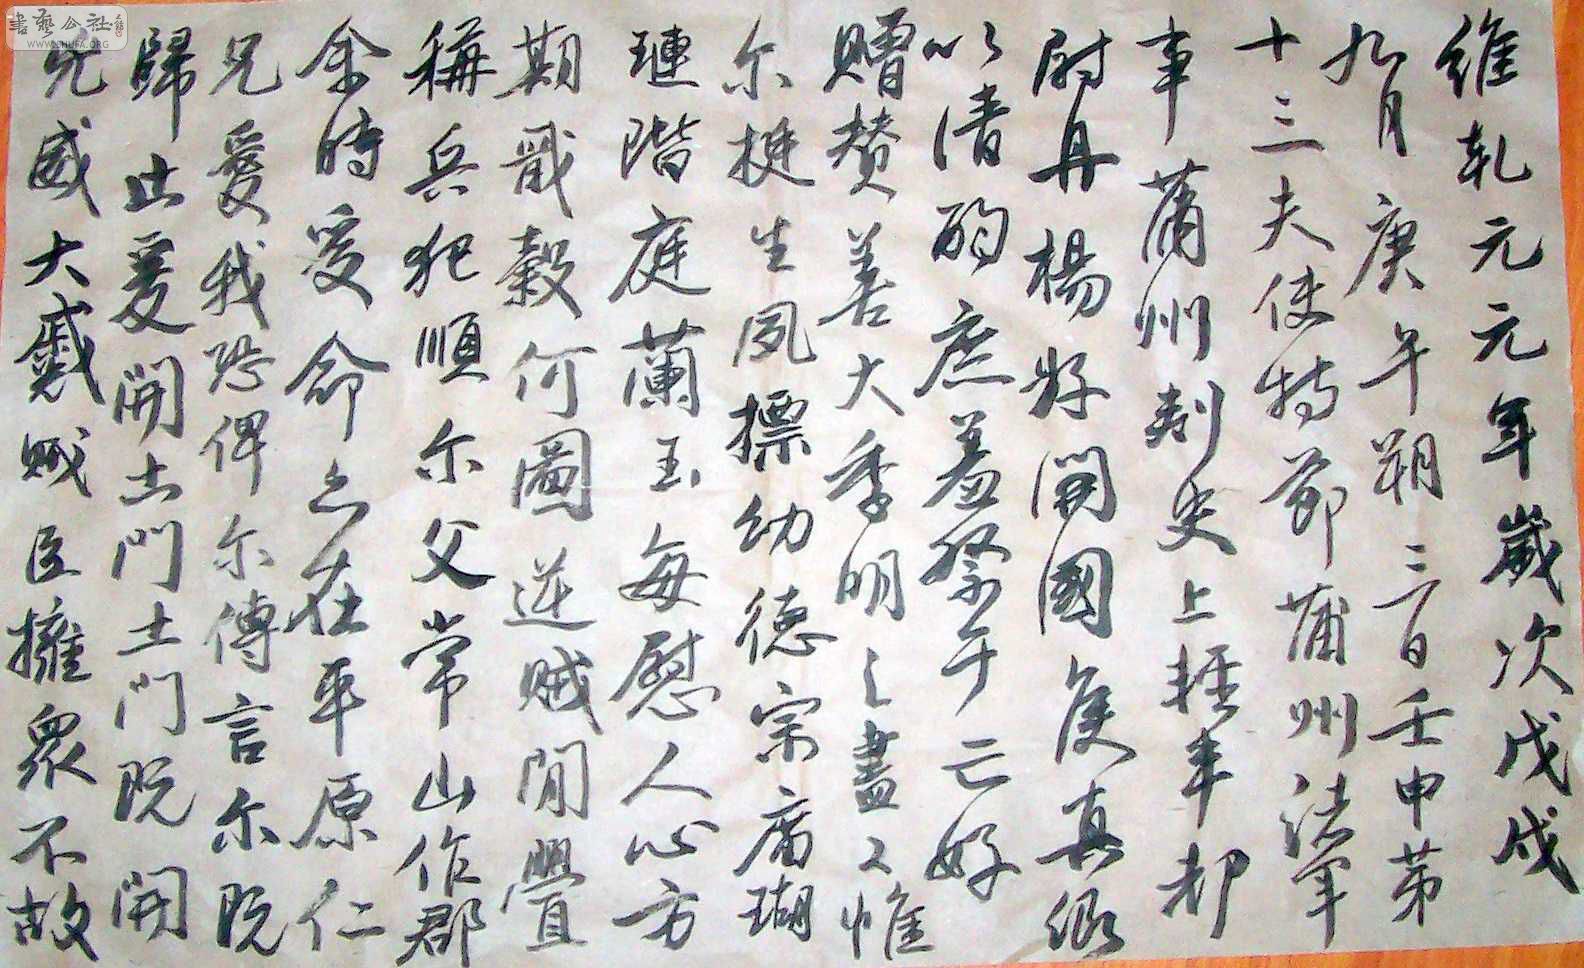 書藝公社
WWW.SHUFA.ORG
維乹元元年歲次戊戌
九月庚午朔三日壬申第
十三夫使持節蒲州諸軍
事蒲州刺史上輕車都
尉丹楊縣開國侯真卿
以清酌庶羞祭于亡姪
贈贊善大季明之盡之惟
尔挺生夙標幼德宗廟瑚
璉階庭蘭玉每慰人心方
期戩穀何圖逆賊閒舋
稱兵犯順尔父常山作郡
余時受命亦在平原仁
兄愛我恐俾尔傳言尔既
歸止爰開土門土門既開
兇威大蹙賊臣擁衆不救